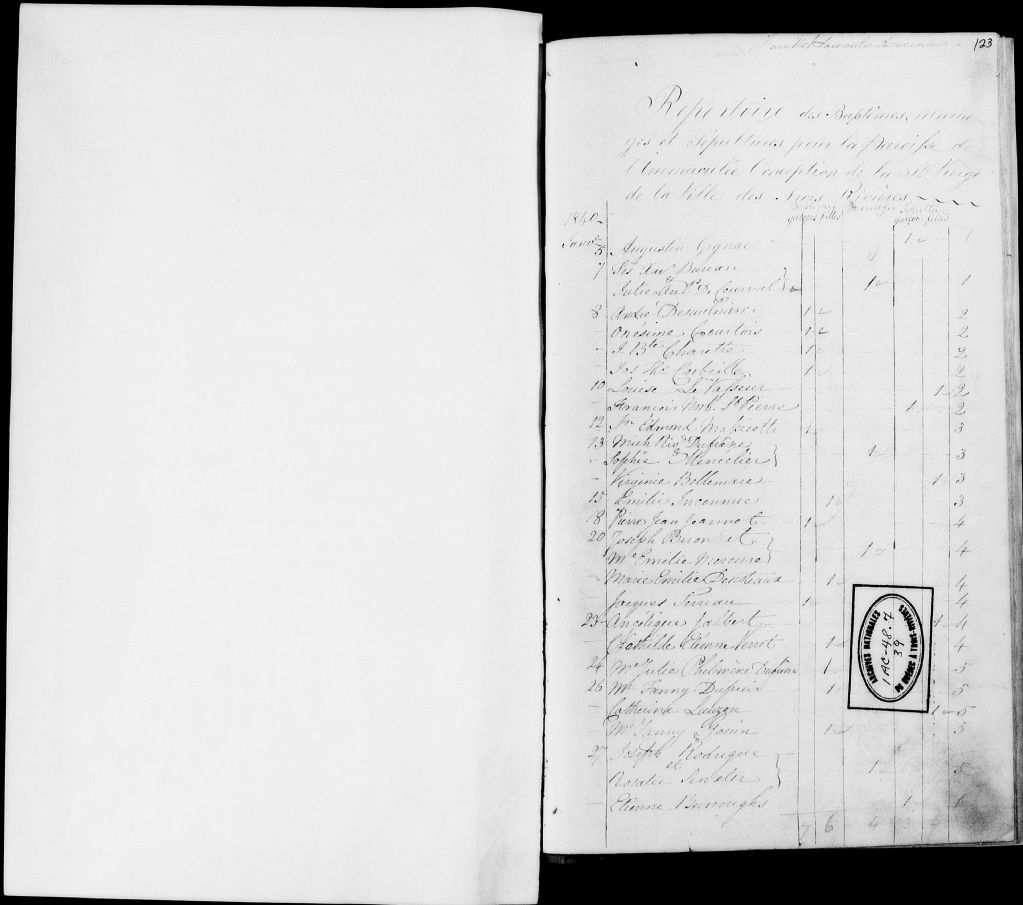 feuillet soixante deuxième 123
Repertoire des Baptêmes, maria
ges et Sépultures pour la Paroisse de
l'Immaculée Conception de la Ste Vierge
de la Ville des Trois Rivières
Baptêmes mariages Sépultures
garçons filles garçons filles
1840
Janvr
5 Augustin Gignac 1 1
7 Frs Xavr Bureau
et Julie De Courval 1 1
8 André 1 2
- Onésime Courtois 1 2
- J. Bte Charette 1 2
- Jos Corbeille 1 2
10 Louise Le Vasseur 1 2
- François Norb. St Pierre 1 2
12 Jn Edmond Massicotte 1 3
13 Mich Dufresne
- Sophie Menclier 1 3
- Virginie Bellemare 1 3
15 Emilie Inconnue 1 3
18 Pierre Jean Jeannot 1 4
20 Joseph Biron et
Me Emilie Mercure 1 4
- Marie Emilie 1 4
- Jacques Ferreau 1 4
23 Angélique Jalbert 1 4
- Clothilde Etiennette 1 4
24 Me Julie Philomène 1 5
26 Me Fanny Dupuis 1 5
- Catherine Lauzon 1 5
- Me Fanny Gouin 1 5
27 Joseph Rodrigue
et
Rosalie 1 5
- Etienne Burroughs 1 6
7 6 4
ARCHIVES NATIONALES
1AC-48.7
39
DU QUÉBEC À TROIS-RIVIÈRES